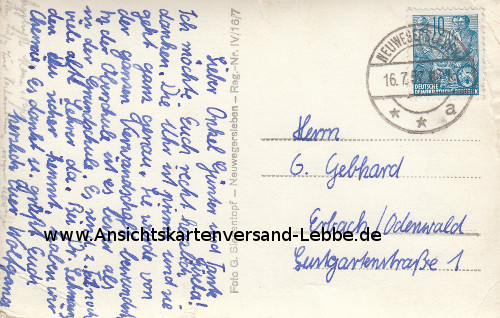 Lieber Onkel Günter, Tante Gisela!
Ich möchte Euch recht herzlich
danken. Die Uhr ist prima und
geht ganz genau. Sie wurde von
der ganzen Klasse bewundert.
In der Oberschule ist es
in der Grundschule. Es
viele alte Lehrer da.
den du
Chemie. Es dankt u. grüßt Euch
herzlich Euer Wolfgang
Foto G. Neuwegersleben – Reg.-Nr. IV/16/7
NEUWEGERSLEBEN
16.7.
a
10
DEUTSCHE
DEMOKRATISCHE REPUBLIK
Herrn
G. Gebhard
Erbach/Odenwald
Lustgartenstraße 1
www.Ansichtskartenversand-Lebbe.de